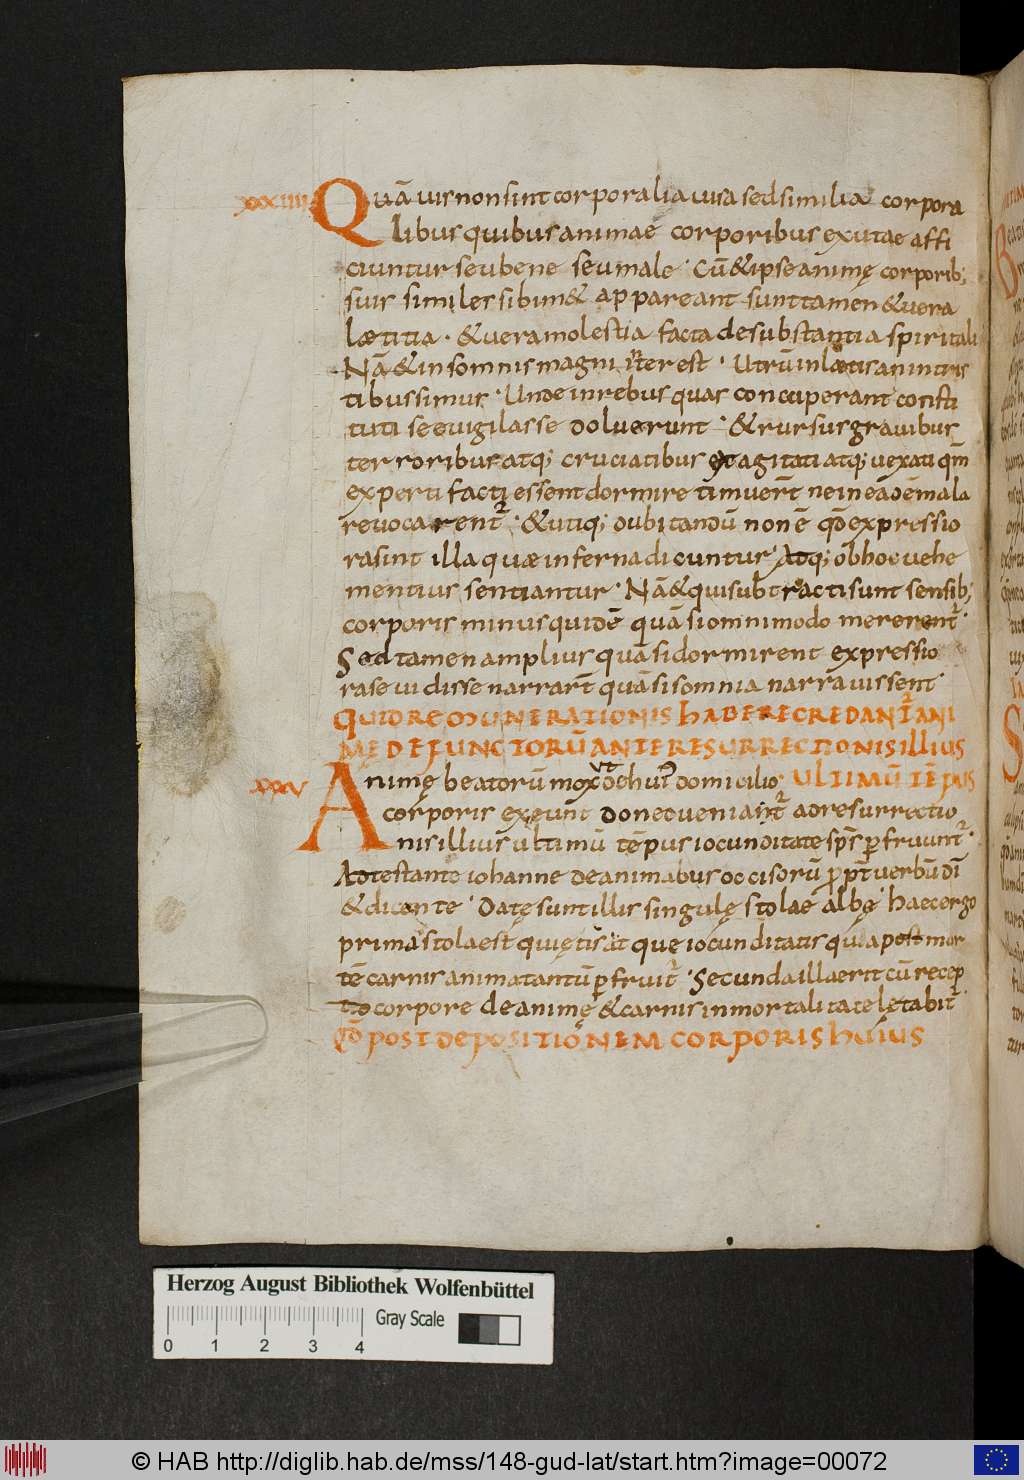 xxxiiii Quā uis non sint corporalia uisa sed similia corpora
libus quibus animae corporibus exutae affi
ciuntur seu bene seu male · Cū & ipse animę corporib;
suis similes sibim& appareant sunt tamen & uera
lætitia · & uera molestia facta de substantia spiritali
Nā & in somnis magni interest · Utrū in lætis an in tris
tibus simus · Unde in rebus quas concuperant consti
tuti se euigilasse doluerunt · & rursus grauibus
terroribus atq; cruciatibus exagitati atq; uexati qm̄
experti facti essent dormire timuer̄t ne in eadē mala
reuocarent᷑ · & utiq; dubitandū non ē qd̄ expressio
ra sint illa quæ inferna dicuntur · Atq; ob hoc uehe
mentius sentiantur · Nā & qui subtracti sunt sensib;
corporis minus quidē quā si omnimodo morerent᷑ ·
Sed tamen amplius quā si dormirent expressio
ra se uidisse narrar̄t quā si somnia narrauissent ·
QUID REMUNERATIONIS HABERE CREDANT᷑ ANI
MĘ DEFUNCTORŪ ANTE RESURRECTIONIS ILLIUS
xxxv Animę beatorū mox ut de hui᷒ domicilio · ULTIMŪ TĒPUS
corporis exeunt donec ueniant᷑ ad resurrectio
nis illius ultimū tēpus iocunditate sp̄s ꝑfruunt᷑ ·
Adtestante iohanne de animabus occisorū ꝓpt̄ uerbū dī
& dicente · Datę sunt illis singulę stolae albę · haec ergo
prima stola est quiętis at que iocunditatis qui a post mor
tē carnis anima tantū ꝑfruit᷑ · Secunda illa erit cū recep
to corpore de animę & carnis inmortalitate lętabit᷑
QD̄ POST DEPOSITIONEM CORPORIS HUIUS
Herzog August Bibliothek Wolfenbüttel
Gray Scale
0 1 2 3 4
© HAB http://diglib.hab.de/mss/148-gud-lat/start.htm?image=00072